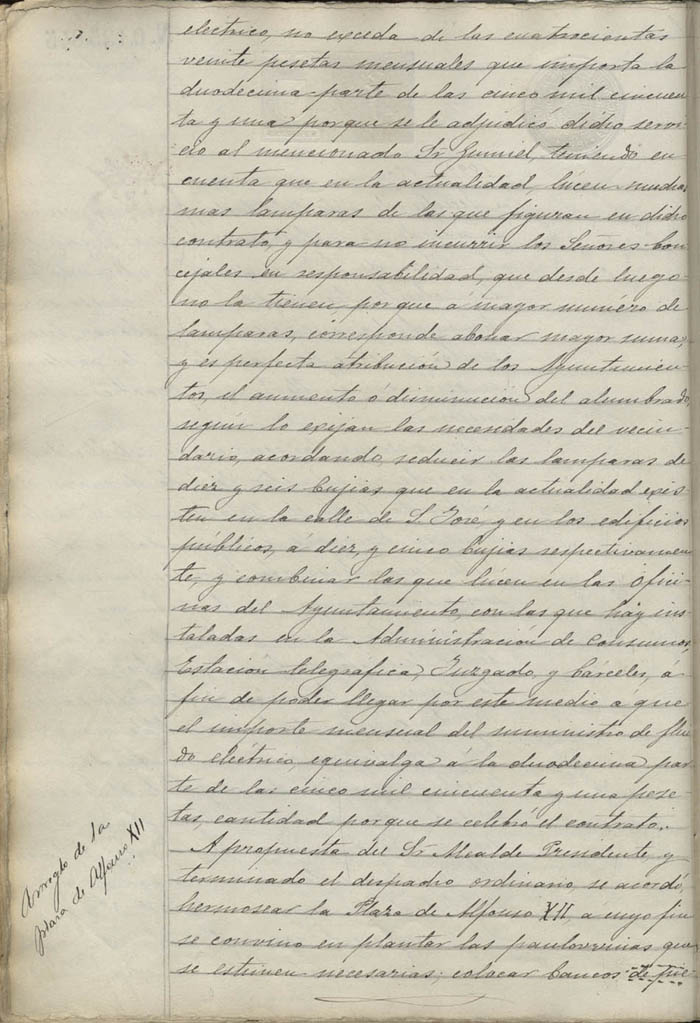 electrico, no exceda de las cuatrocientas
veinte pesetas mensuales que importa la
duodecima parte de las cinco mil cincuen-
ta y una porque se le adjudicó dicho servi-
cio al mencionado Sr Gumiel, teniendo en
cuenta que en la actualidad, lucen muchas
mas lamparas de las que figuran en dicho
contrato, y para no incurrir los Señores Con-
cejales en responsabilidad, que desde luego
no la tienen porque á mayor numero de
lamparas, corresponde abonar mayor suma,
y es perfecta atribución de los Ayuntamien-
tos, el aumento ó diminución del alumbrado,
según lo exijan las necesidades del vecin-
dario, acordando, reducir las lamparas de
diez y seis bujias que en la actualidad exis-
ten en la calle de S. José, y en los edificios
públicos, á diez, y cinco bujias respectivamen-
te, y combinar las que lucen en las Ofici-
nas del Ayuntamiento, con las que hay ins-
taladas en la Administración de Consumos,
Estación telegrafica, Juzgado, y Cárceles, á
fin de poder llegar por este medio á que
el importe mensual del suministro de flui-
do eléctrico, equivalga á la duodecima par-
te de las cinco mil cincuenta y una pese-
tas, cantidad porque se celebró el contrato.
Arreglo de la
plaza de Alfonso XII
A propuesta del Sr Alcalde Presidente y
terminado el despacho ordinario se acordó,
hermosear la Plaza de Alfonso XII, á cuyo fin
se convino en plantar las paulovnias que
se estimen necesarias; colocar bancos de pie-